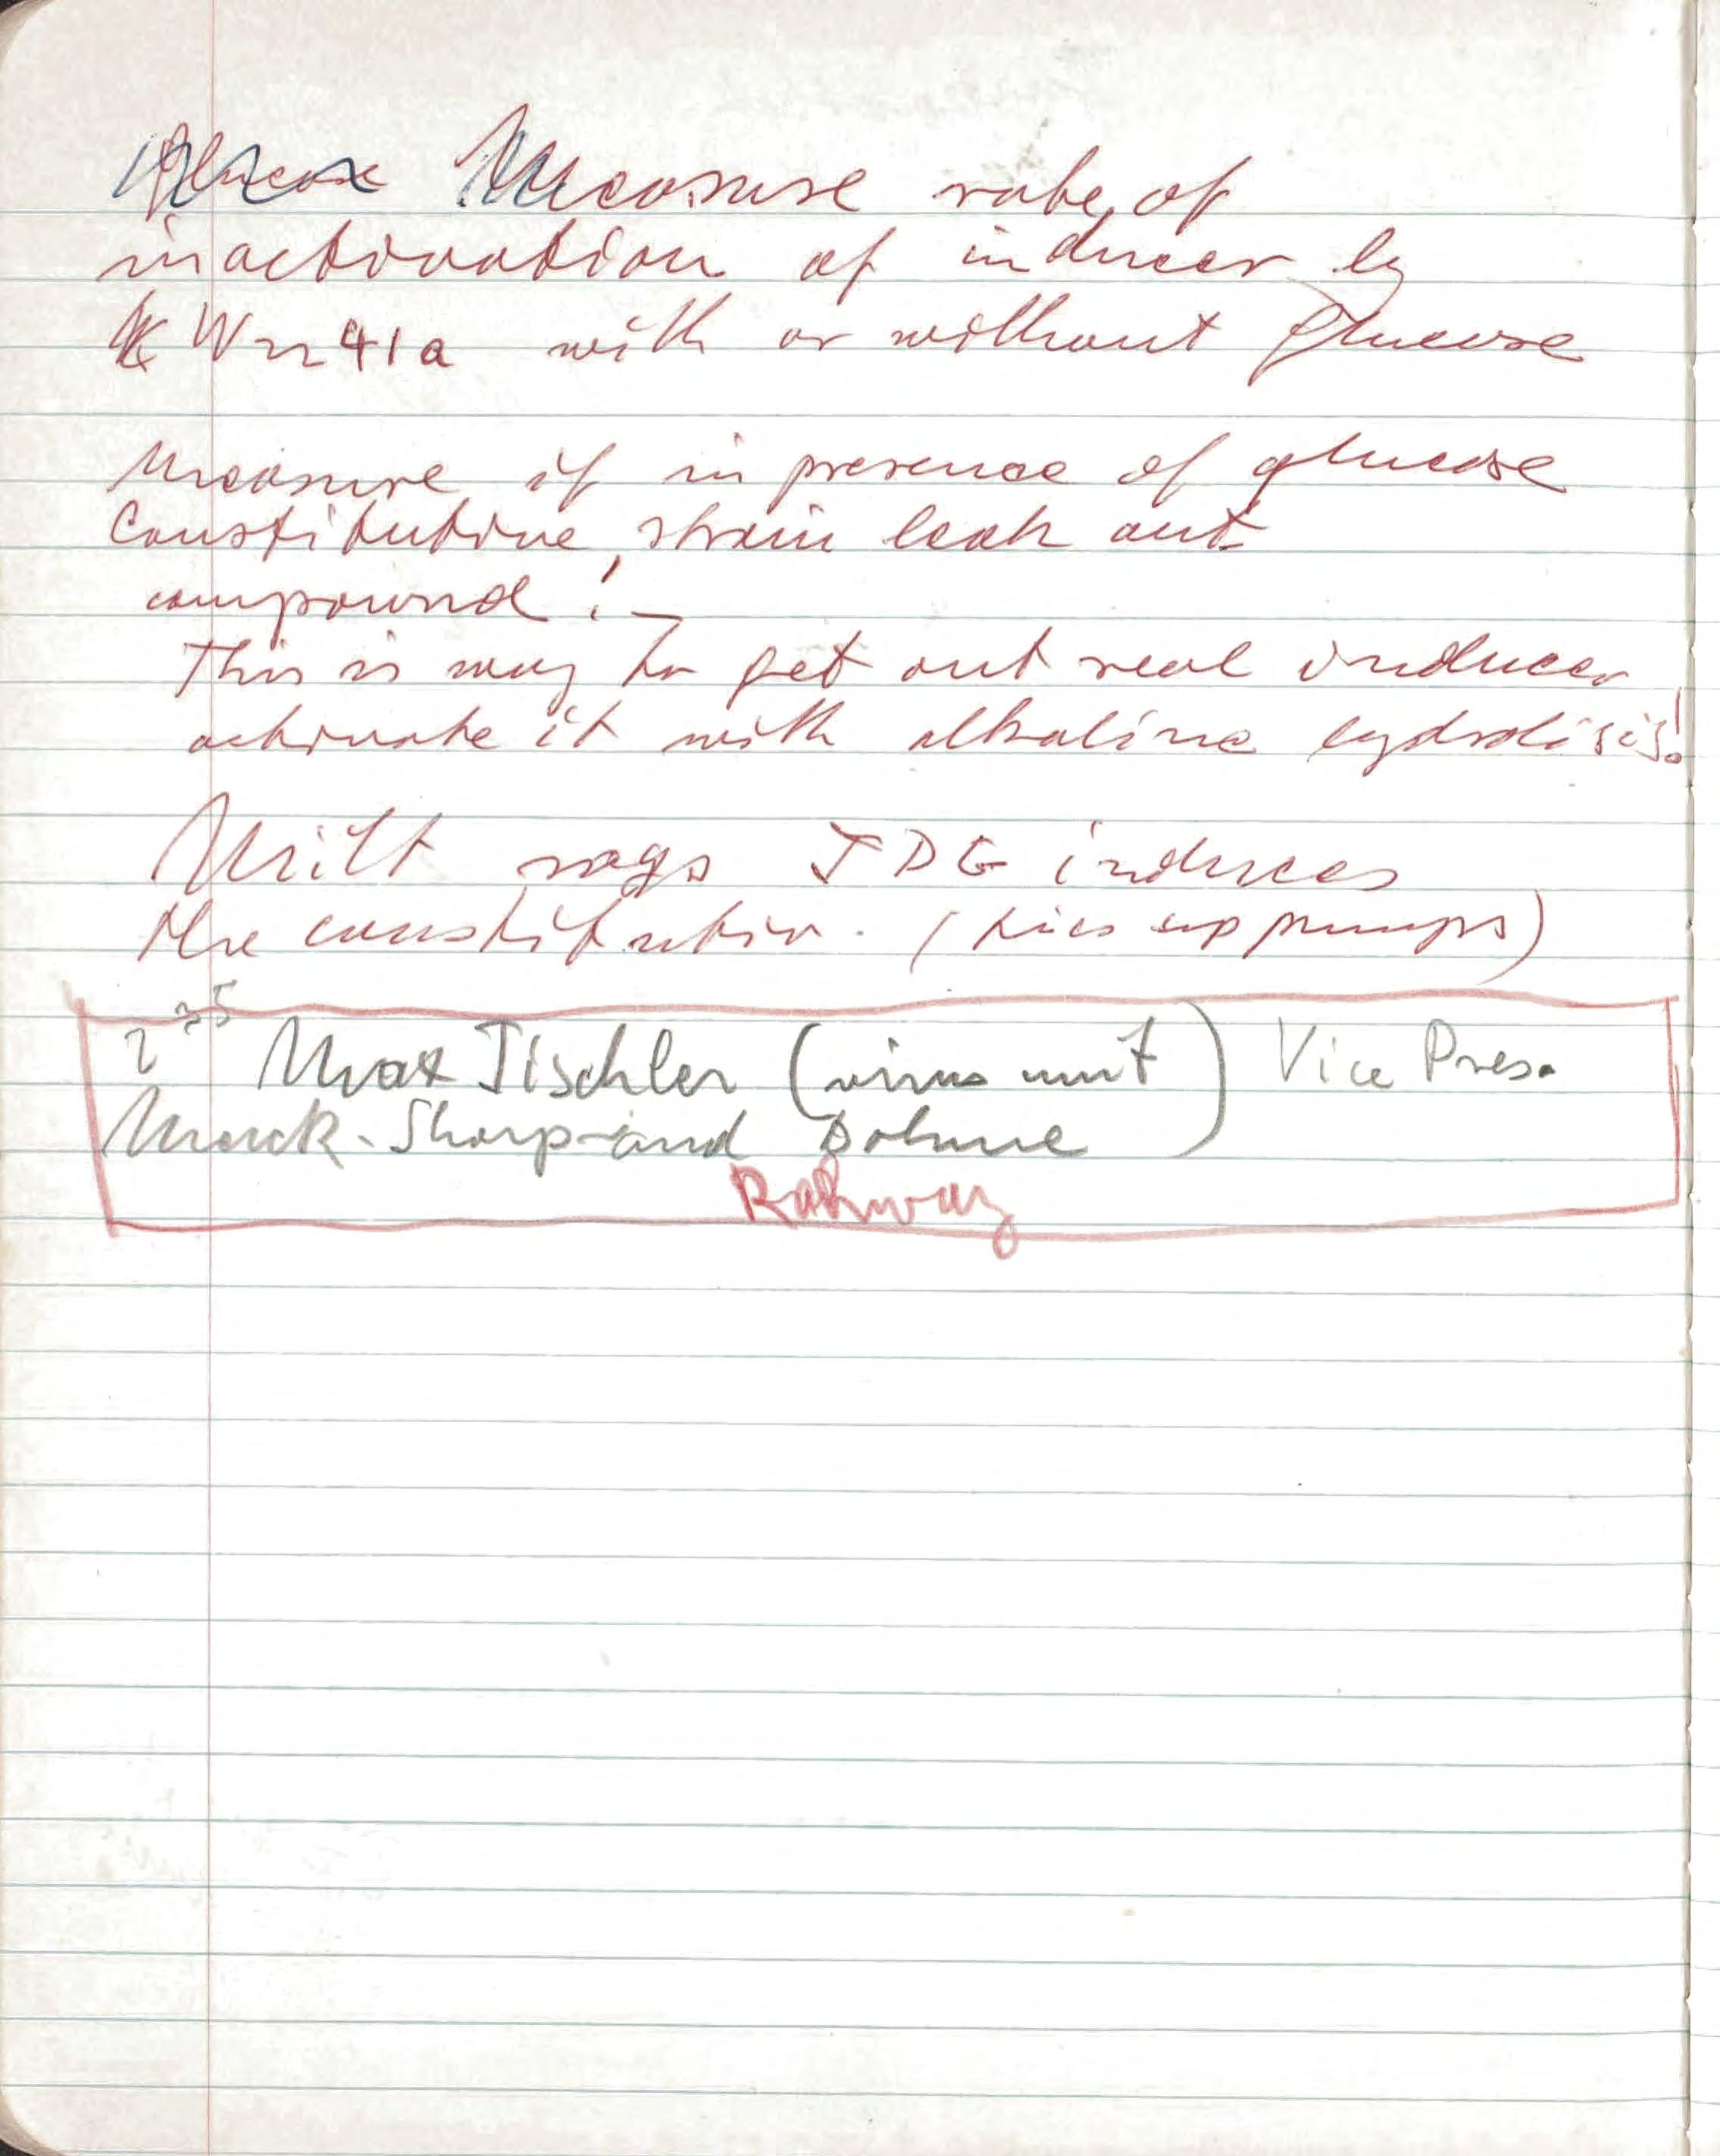 Glucose Measure rate of
inactivation of inducer by
W2241a with or without glucose
Measure if in presence of glucose
Constitutive strain leak out
compound! –
This is way to get out real inducer
activate it with alkaline hydrolisis!
Milt says TDG induces
the constitutiv. (ties up pumps)
2 35 Max Tischler (virus unit) Vice Pres.
Merck-Sharp-and Dohme
Rahway